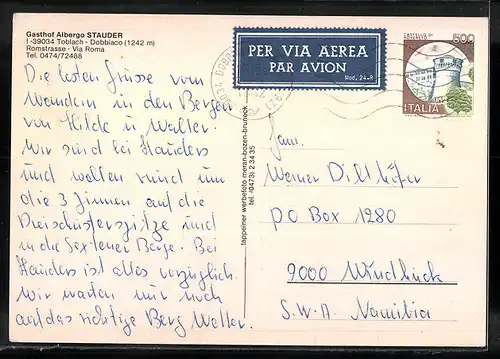 Gasthof Albergo STAUDER
I-39034 Toblach - Dobbiaco (1242 m)
Romstrasse - Via Roma
Tel. 0474/72488
Die besten Grüsse vom
Wandern in den Bergen
von Hilde u. Walter.
Wir sind bei Stauders
und wollen rund um
die 3 Zinnen auf die
Dreischusterspitze und
in die Sextener Berge. Bei
Stauders ist alles vorzüglich.
Wir warten nur noch
auf das richtige Berg Wetter.
tappeiner werbefoto meran-bozen-bruneck
tel. (0473) 2 34 35
PER VIA AEREA
PAR AVION
Mod. 24-R
500
ITALIA
Fam.
Werner
PO Box 1280
9000 Windhuck
S.W.A. Namibia